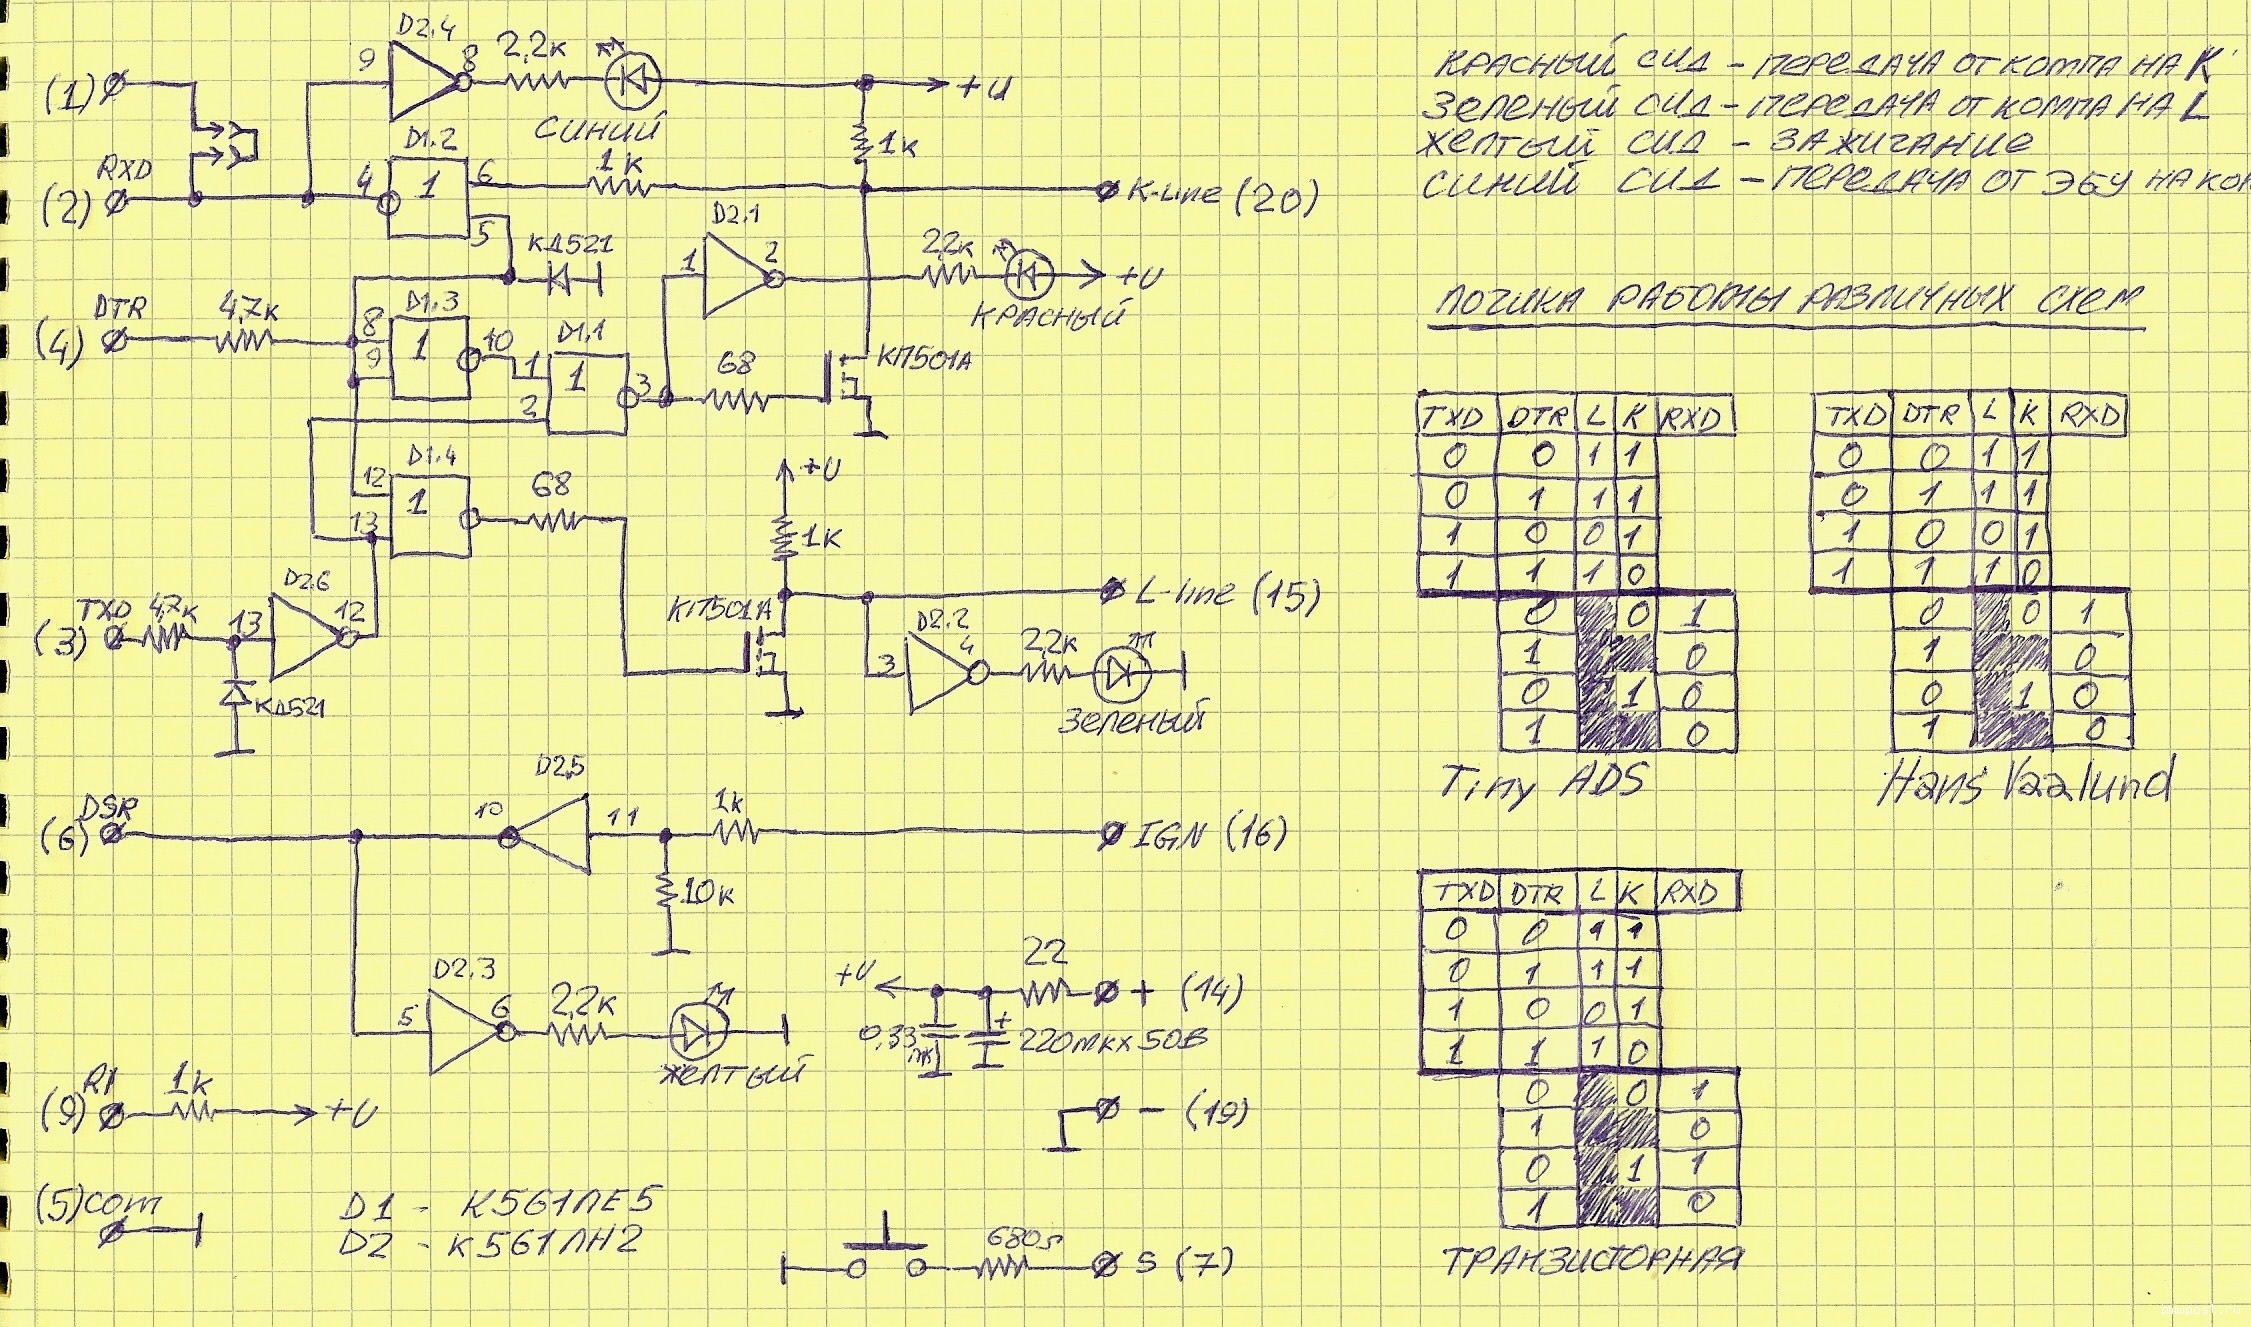 D2.4
9
8
2,2к
СИНИЙ
+U
(1)
RXD
(2)
D1.2
4
1
6
5
1к
1к
K-Line (20)
КД521
D2.1
1
2
2,2к
+U
КРАСНЫЙ
DTR
(4)
4,7к
8
9
D1.3
1
10
D1.1
1
2
1
3
68
КП501А
D1.4
12
13
1
68
+U
1к
TXD
(3)
4,7к
13
D2.6
12
КД521
КП501А
L-line (15)
D2.2
3
4
2,2к
ЗЕЛЕНЫЙ
DSR
(6)
D2.5
10
11
1к
IGN (16)
10к
D2.3
5
6
2,2к
ЖЕЛТЫЙ
+U
22
+ (14)
0,33
мк
+
220мкх50В
RI
(9)
1к
+U
- (19)
(5) com
D1 - К561ЛЕ5
D2 - К561ЛН2
680Ω
S (7)
КРАСНЫЙ СИД - ПЕРЕДАЧА ОТ КОМПА НА K
ЗЕЛЕНЫЙ СИД - ПЕРЕДАЧА ОТ КОМПА НА L
ЖЕЛТЫЙ СИД - ЗАЖИГАНИЕ
СИНИЙ СИД - ПЕРЕДАЧА ОТ ЭБУ НА КОМ
ЛОГИКА РАБОТЫ РАЗЛИЧНЫХ СХЕМ
TXD DTR L K RXD
0 0 1 1
0 1 1 1
1 0 0 1
1 1 1 0
0 0 1
1 0
0 1 0
1 0
Tiny ADS
TXD DTR L K RXD
0 0 1 1
0 1 1 1
1 0 0 1
1 1 1 0
0 0 1
1 0
0 1 0
1 0
Hans Vaalund
TXD DTR L K RXD
0 0 1 1
0 1 1 1
1 0 0 1
1 1 1 0
0 0 1
1 0
0 1 1
1 0
ТРАНЗИСТОРНАЯ